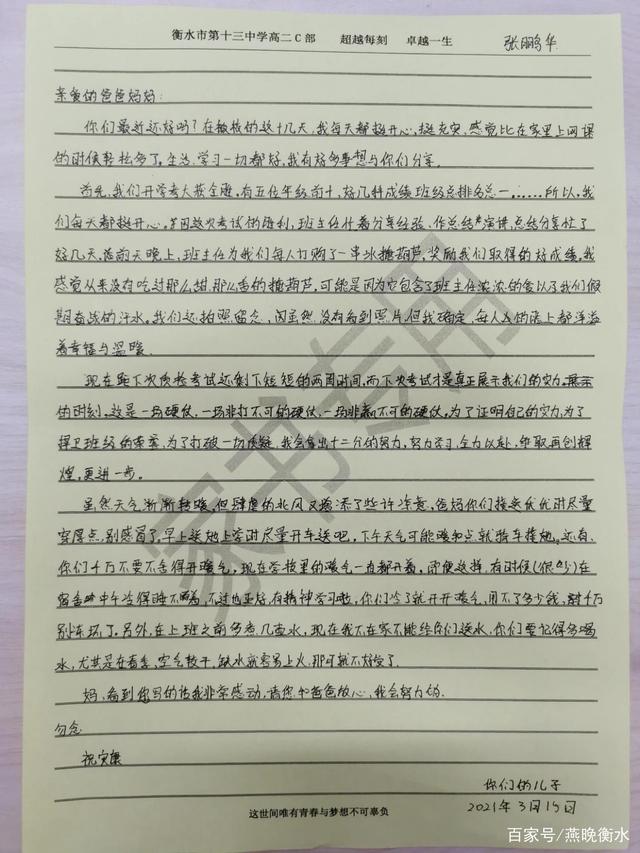 衡水市第十三中学高二C部 超越每刻 卓越一生 张鹏华
亲爱的爸爸妈妈:
你们最近还好吗?在学校的这十几天,我每天都挺开心,挺充实,感觉比在家里上网课
的时候轻松多了。生活、学习一切都好,我有好多事想与你们分享。
首先,我们开学考大获全胜,有五位年级前十,好几科成绩班级总排名总一……所以,我
们每天都挺开心。因这次考试的胜利,班主任忙着分享经验、作总结演讲,总结分享忙了
好几天,在前天晚上,班主任为我们每人订购了一串冰糖葫芦,奖励我们取得的好成绩。我
感觉从来没有吃过那么甜、那么香的糖葫芦,可能是因为它包含了班主任浓浓的爱以及我们假
期奋战的汗水。我们还拍照留念,虽然没有看到照片但我确定,每人的脸上都洋溢
着幸福与温暖。
现在距下次质检考试还剩下短短的两周时间,而下次考试才是真正展示我们的实力
的时刻,这是一场硬仗,一场非打不可的硬仗,一场非赢不可的硬仗。为了证明自己的实力,为了
捍卫班级的荣誉,为了打破一切质疑,我会拿出十二分的努力,努力学习,全力以赴,争取再创辉
煌,更进一步。
虽然天气渐渐转暖,但肆虐的北风又增添了些许冷意,爸妈你们接送优优时尽量
穿厚点,别感冒了。早上送她上学时尽量开车送吧,下午天气可能暖和点就骑车接她。还有,
你们千万不要不舍得开暖气,现在学校里的暖气一直都开着,即便这样,有时候(很少)在
宿舍中午冷得睡不着,不过也正好有精神学习啦,你们冷了就开开暖气,用不了多少钱,千万
别冻坏了。另外,在上班之前多煮几壶水,现在我不在家不能给你们送水,你们要记得多喝
水,尤其是在春季,空气较干,缺水就容易上火,那可就不好受了。
妈,看到您写的信我非常感动,请您和爸爸放心,我会努力的。
勿念
祝安康
你们的儿子
2021年3月15日
家书专用
这世间唯有青春与梦想不可辜负
百家号/燕晚衡水